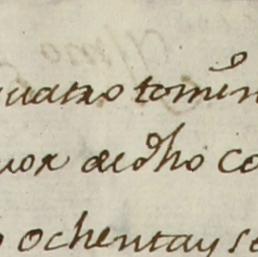 quatro tomin
uor de dho co
ochenta y se